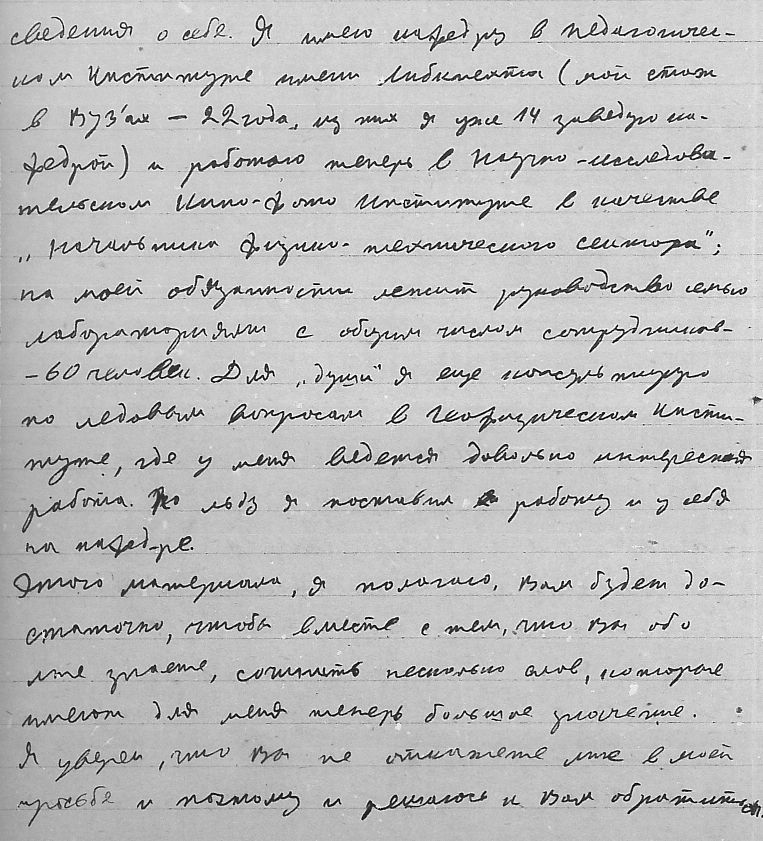 сведения о себе. Я имею кафедру в педагогичес-
ком Институте имени Либкнехта (мой стаж
в Вуз'ах — 22 года, из них я уже 14 заведую ка-
федрой) и работаю теперь в Научно-исследова-
тельском Кино-фото Институте в качестве
„Начальника физико-технического сектора";
на моей обязанности лежит руководство семью
лабораториями с общим числом сотрудников-
-60 человек. Для „души" я еще консультирую
по ледовым вопросам в Геофизическом Инсти-
туте, где у меня ведется довольно интересная
работа. По льду я поставил работу и у себя
на кафед-ре.
Этого материала, я полагаю, Вам будет до-
статочно, чтобы вместе с тем, что Вы обо
мне знаете, сочинить несколько слов, которые
имеют для меня теперь большое значение.
Я уверен, что Вы не откажете мне в моей
просьбе и поэтому и решаюсь к Вам обратиться.